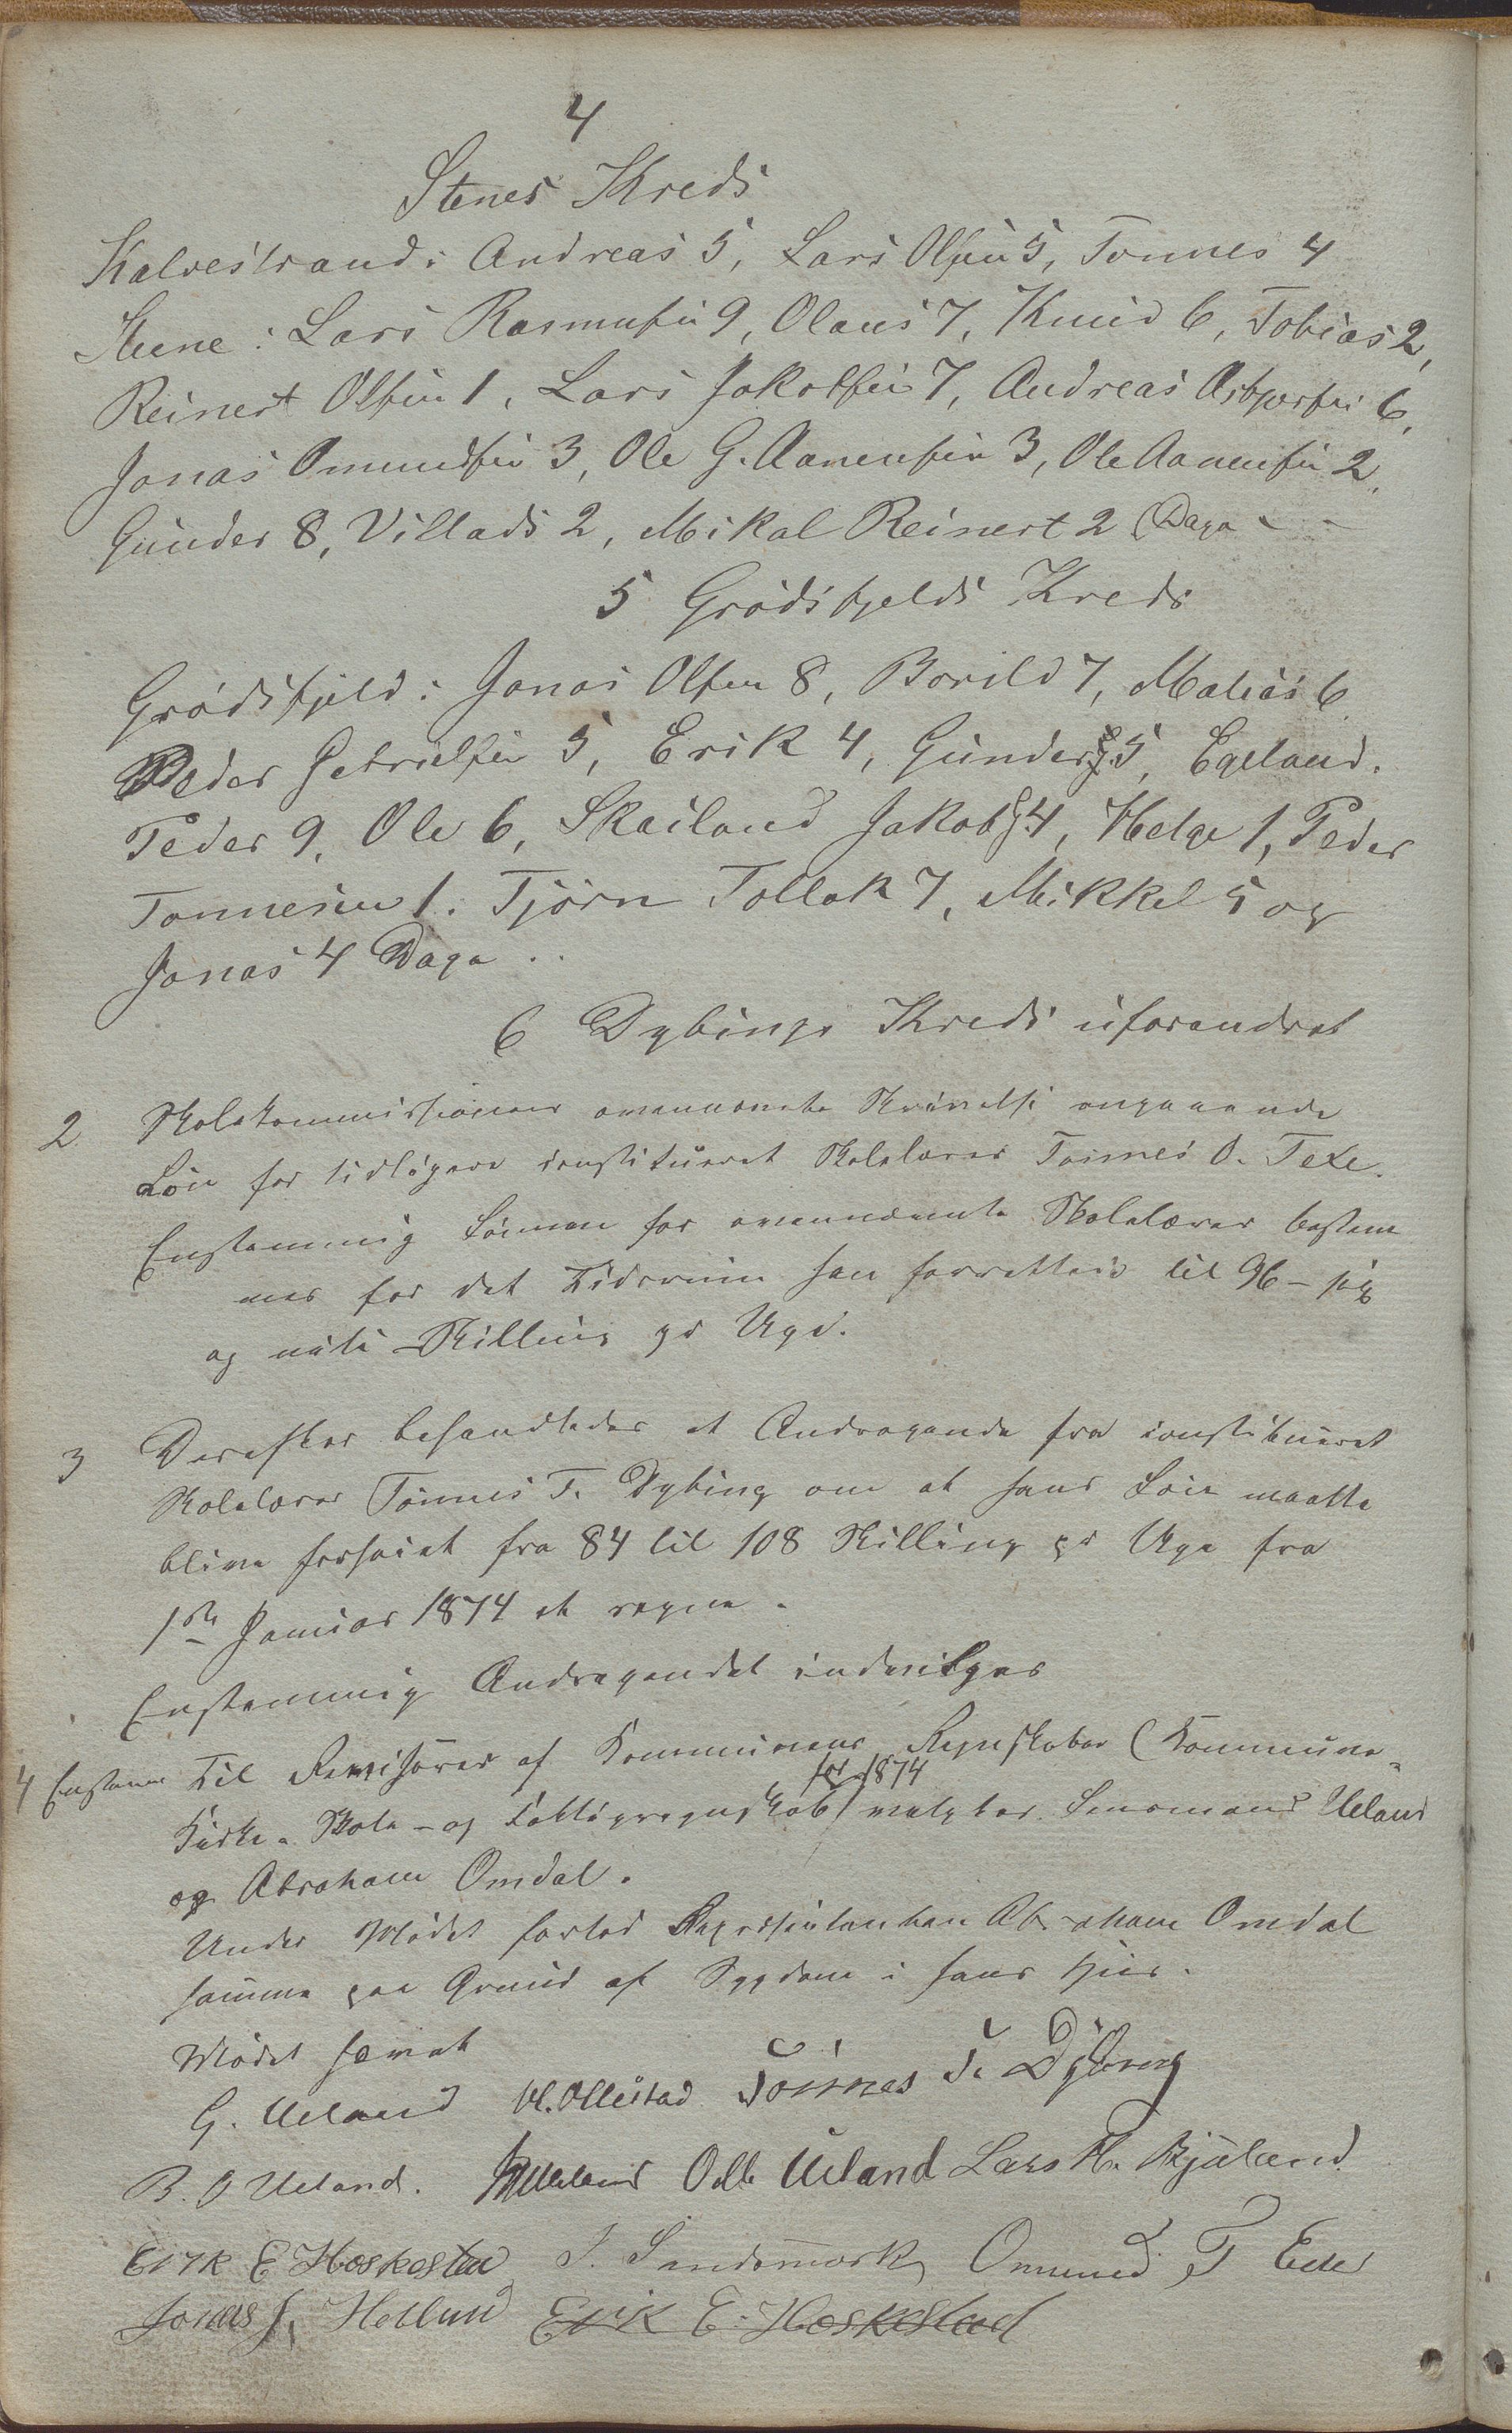 4
Stenes Kreds
Kalvestrand: Andreas 5, Lars Olsen 5, Tonnes 4
Stene: Lars Rasmusen 9, Olaus 7, Knud 6, Tobias 2,
Reinert Olsen 1, Lars Jakobsen 7, Andreas Asbjørsen 6,
Jonas Omundsen 3, Ole G. Aanensen 3, Ole Aanensen 2,
Gunder 8, Villads 2, Mikal Reinert 2 Dage
5 Grødsfjelds Kreds
Grødsfjeld: Jonas Olsen 8, Borild 7, Matias 6
Peder Gabrielsen 5, Erik 4, Gunder 5, Egeland.
Peder 9, Ole 6, Skailand Jakob 4, Helge 1, Peder
Tonnesen 1. Tjörn Tollak 7, Mikkel 5 og
Jonas 4 Dage
6 Dybings Kreds uforandret
2 Skolekommissionens ovennævnte Skrivelse angaaende
Løn for tidligere konstitueret Skolelærer Tønnes O. Texe.
Enstemmig Lønnen for ovennævnte Skolelærer bestem
mes for det Tidsrum han forrettede til 96 - sex
og niti Skilling pr Uge.
3 Derefter behandledes et Andragende fra konstitueret
Skolelærer Tönnes T. Dybing om at hans Løn maatte
blive forhøiet fra 84 til 108 Skilling pr Uge fra
1ste Januar 1874 at regne.
Enstemmig Andragendet indvilges
4 Enstem Til Revisorer af Kommunens Regnskaber (Kommune-
for 1874
Kirke- Skole- og Fattigregnskab) valgtes Lensmand Ueland
og Abraham Omdal.
Under Mödet forlod Repræsentanten Abraham Omdal
samme paa Grund af Sygdom i hans Hus.
Mödet hævet
G. Ueland M. Ollestad Tönnes T. Dybing
B. O Ueland. Odb Ueland Lars H. Bjuland
Erik E Hoskestad J. Sandsmark Ommund T Eide
Jonas J. Hetland Erik E. Hoskestad